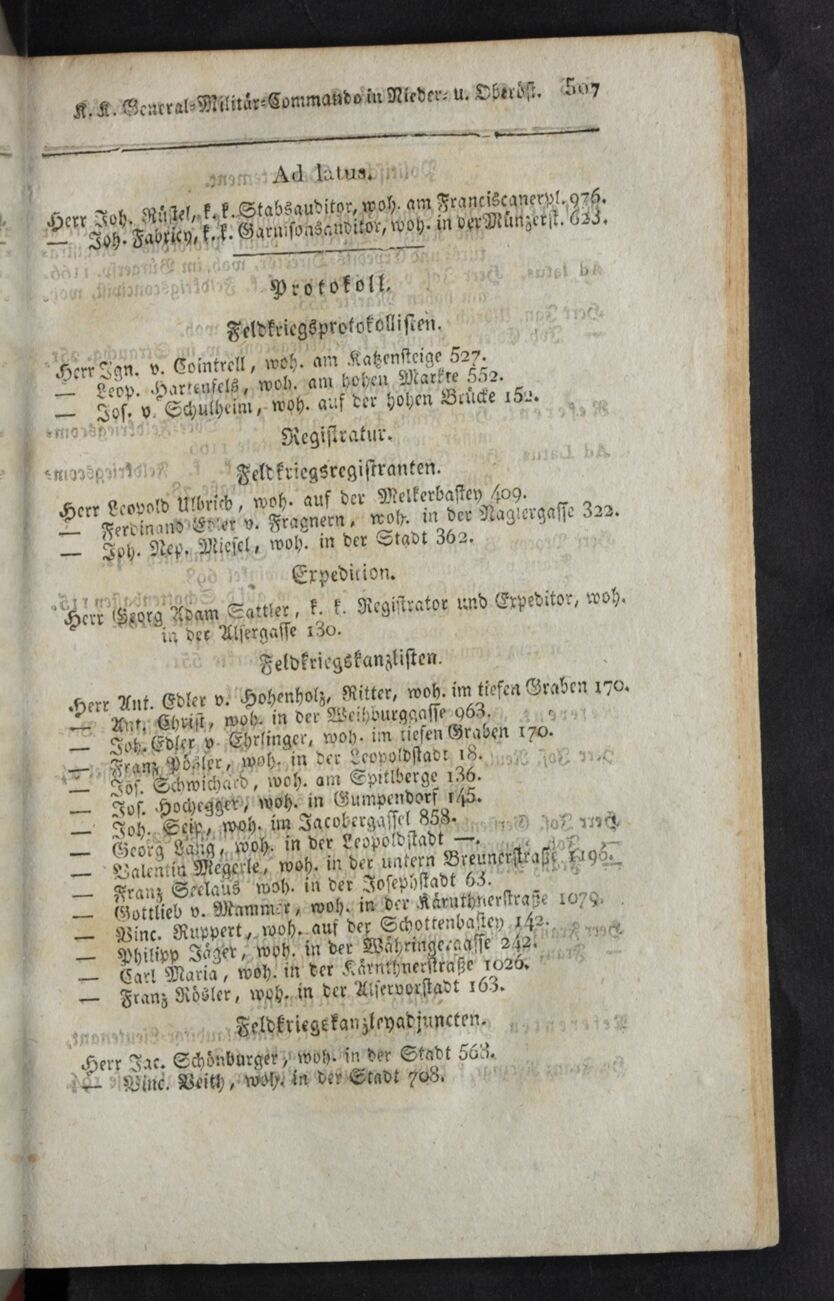 K. K. General-Militär-Commando in Nieder- u. Oberöst. 507
Ad latus.
Herr Joh. Rüstel, k. k. Stabsauditor, woh. am Franciscanerpl. 976.
— Joh. Fabricy, k. k. Garnisonsauditor, woh. in der Münzerst. 623.
Protokoll.
Feldkriegsprotokollisten.
Herr Ign. v. Cointrell, woh. am Katzensteige 527.
— Leop. Hartenfels, woh. am hohen Markte 552.
— Jos. v. Schulheim, woh. auf der hohen Brücke 152.
Registratur.
Feldkriegsregistranten.
Herr Leopold Ulbrich, woh. auf der Melkerbastey 409.
— Ferdinand Edler v. Fragnern, woh. in der Naglergasse 322.
— Joh. Nep. Miesel, woh. in der Stadt 362.
Expedition.
Herr Georg Adam Sattler, k. k. Registrator und Expeditor, woh.
in der Alsergasse 130.
Feldkriegskanzlisten.
Herr Ant. Edler v. Hohenholz, Ritter, woh. im tiefen Graben 170.
— Ant. Christ, woh. in der Weihburggasse 963.
— Joh. Edler v. Ehrlinger, woh. im tiefen Graben 170.
— Franz Pösler, woh. in der Leopoldstadt 18.
— Jos. Schwichard, woh. am Spitlberge 136.
— Jos. Hochegger, woh. in Gumpendorf 145.
— Joh. Seip, woh. im Jacobergassel 858.
— Georg Lang, woh. in der Leopoldstadt —.
— Valentin Megerle, woh. in der untern Breunerstraße 1196.
— Franz Seelaus woh. in der Josephstadt 63.
— Gottlieb v. Mammer, woh. in der Kärnthnerstraße 1079.
— Vinc. Ruppert, woh. auf der Schottenbastey 142.
— Philipp Jäger, woh. in der Währingergasse 242.
— Carl Maria, woh. in der Kärnthnerstraße 1026.
— Franz Rösler, woh. in der Alservorstadt 163.
Feldkriegskanzleyadjuncten.
Herr Jac. Schönburger, woh. in der Stadt 568.
— Vinc. Veith, woh. in der Stadt 708.